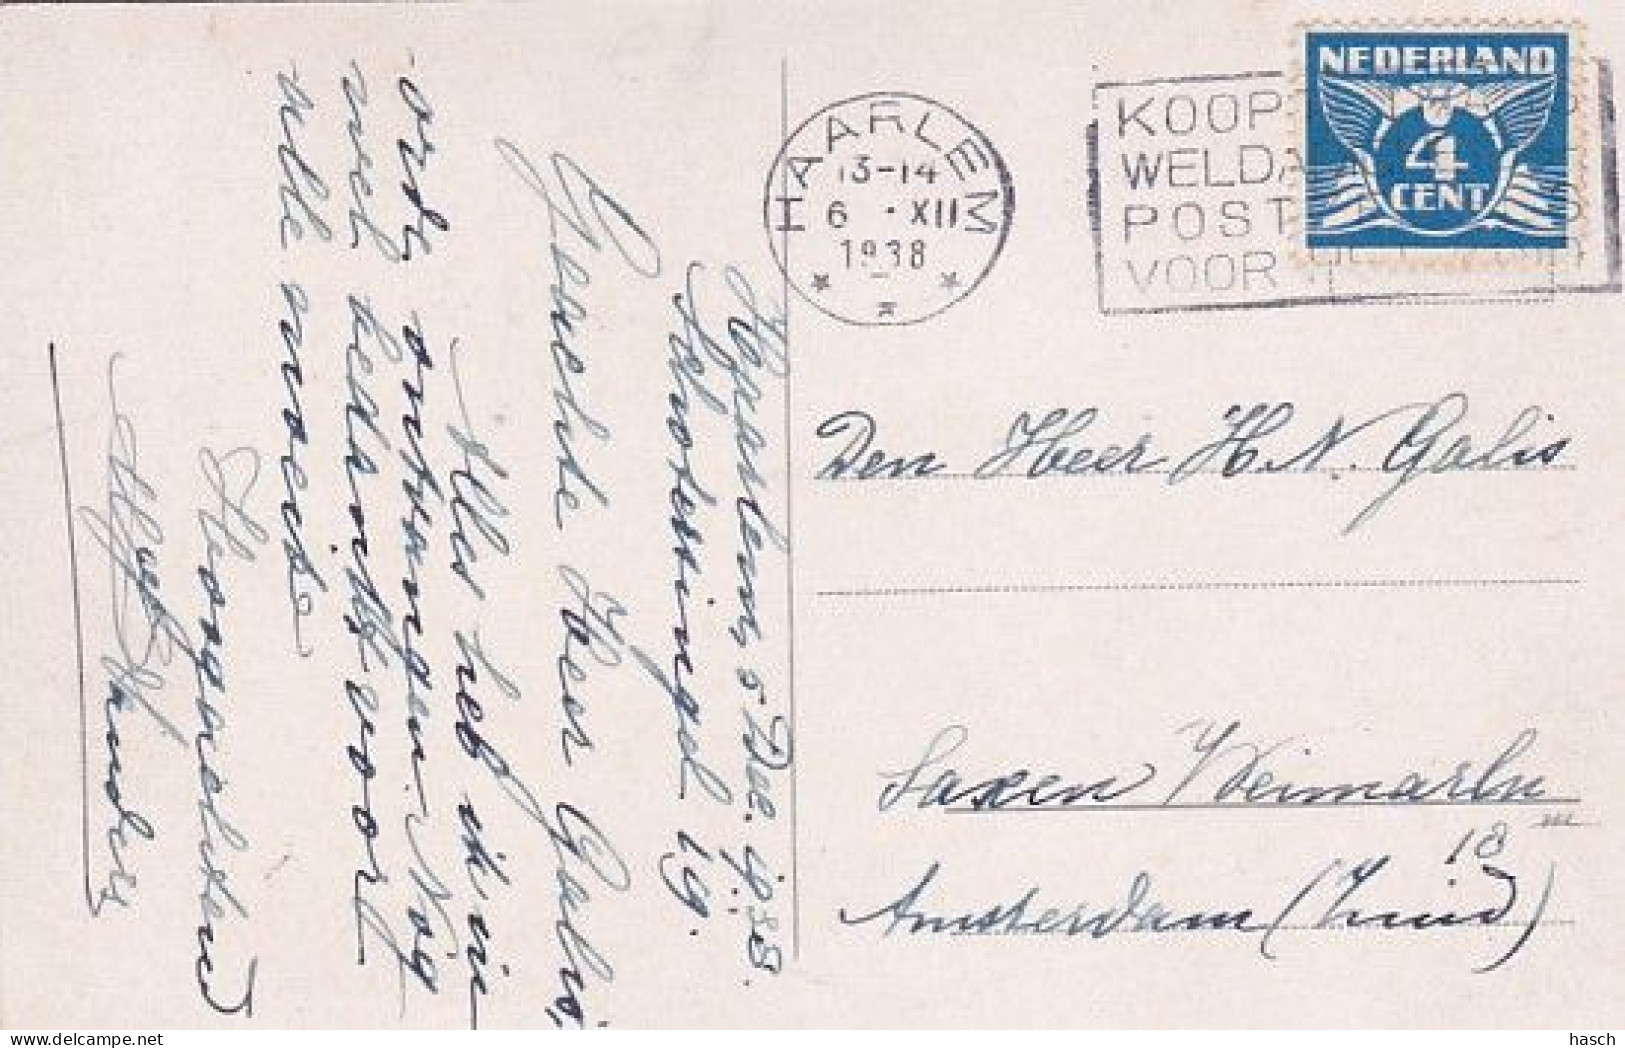 Haarlem, 5 Dec. 1938.
Schotersingel 19.
Geachte Heer Galis,
Alles heb ik in
orde ontvangen. Nog
wel bedankt voor
alle moeite
Hoogachtend
HAARLEM
13-14
6 XII
1938
KOOP
WELDA
POST
VOOR
NEDERLAND
4
CENT
Den Heer H.N. Galis
Saxen Weimarln
18 III
Amsterdam (Zuid)
hasch